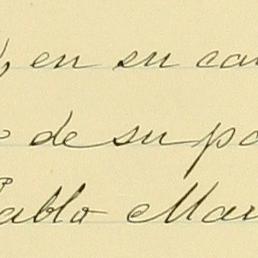 , en su ca
o de su pa
Pablo Mar